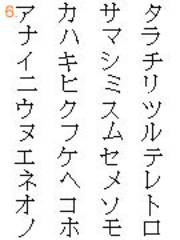 6.アカサタ
ナハマラ
イキシチ
ニヒミリ
ウクスツ
ヌフムル
エケセテ
ネヘメレ
オコソト
ノホモロ